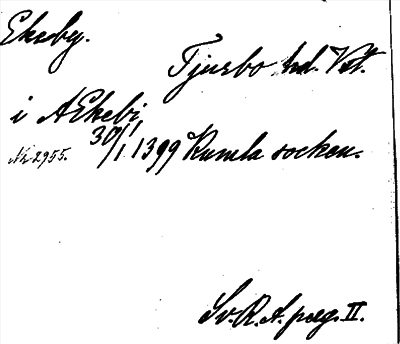 Ekeby.
Tjurbo hd. Vst.
i AEkebi
Nr 2955. 30/1 1399 Kumla socken.
Sv. R. A. perg. II.